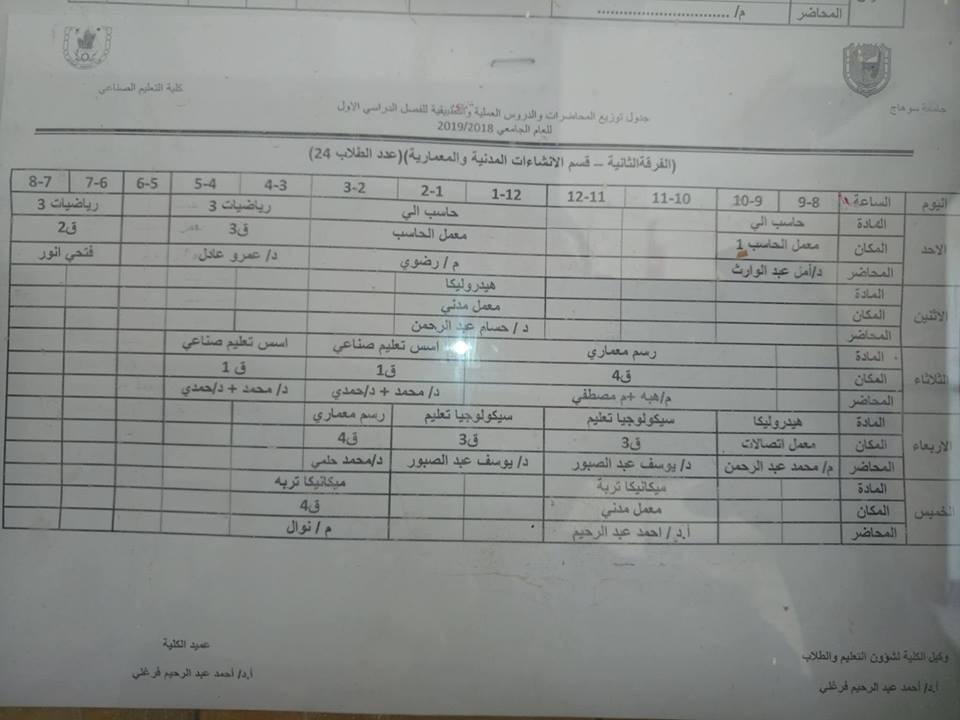 المحاضر م/ ..............................
جامعة سوهاج كلية التعليم الصناعي
جدول توزيع المحاضرات والدروس العملية والتطبيقية للفصل الدراسي الاول
للعام الجامعي 2019/2018
(الفرقةالثانية – قسم الانشاءات المدنية والمعمارية)(عدد الطلاب 24)
اليوم الساعة 9-8 10-9 11-10 12-11 1-12 2-1 3-2 4-3 5-4 6-5 7-6 8-7
الاحد
المادة حاسب الي حاسب الي رياضيات 3 رياضيات 3
المكان معمل الحاسب 1 معمل الحاسب ق3 ق2
المحاضر د/أمل عبد الوارث م / رضوي د/ عمرو عادل فتحي انور
الاثنين
المادة هيدروليكا
المكان معمل مدني
المحاضر د / حسام عبد الرحمن
الثلاثاء
المادة رسم معماري اسس تعليم صناعي اسس تعليم صناعي
المكان ق4 ق1 ق 1
المحاضر م/هبه +م مصطفي د/ محمد + د/حمدي د/ محمد + د/حمدي
الاربعاء
المادة هيدروليكا سيكولوجيا تعليم سيكولوجيا تعليم رسم معماري
المكان معمل اتصالات ق3 ق3 ق4
المحاضر م/ محمد عبد الرحمن د/ يوسف عبد الصبور د/ يوسف عبد الصبور د/محمد حلمي
الخميس
المادة ميكانيكا تربة ميكانيكا تربه
المكان معمل مدني ق4
المحاضر أ.د / احمد عبد الرحيم م / نوال
وكيل الكلية لشؤون التعليم والطلاب
أ.د/ أحمد عبد الرحيم فرغلي
عميد الكلية
أ.د/ أحمد عبد الرحيم فرغلي